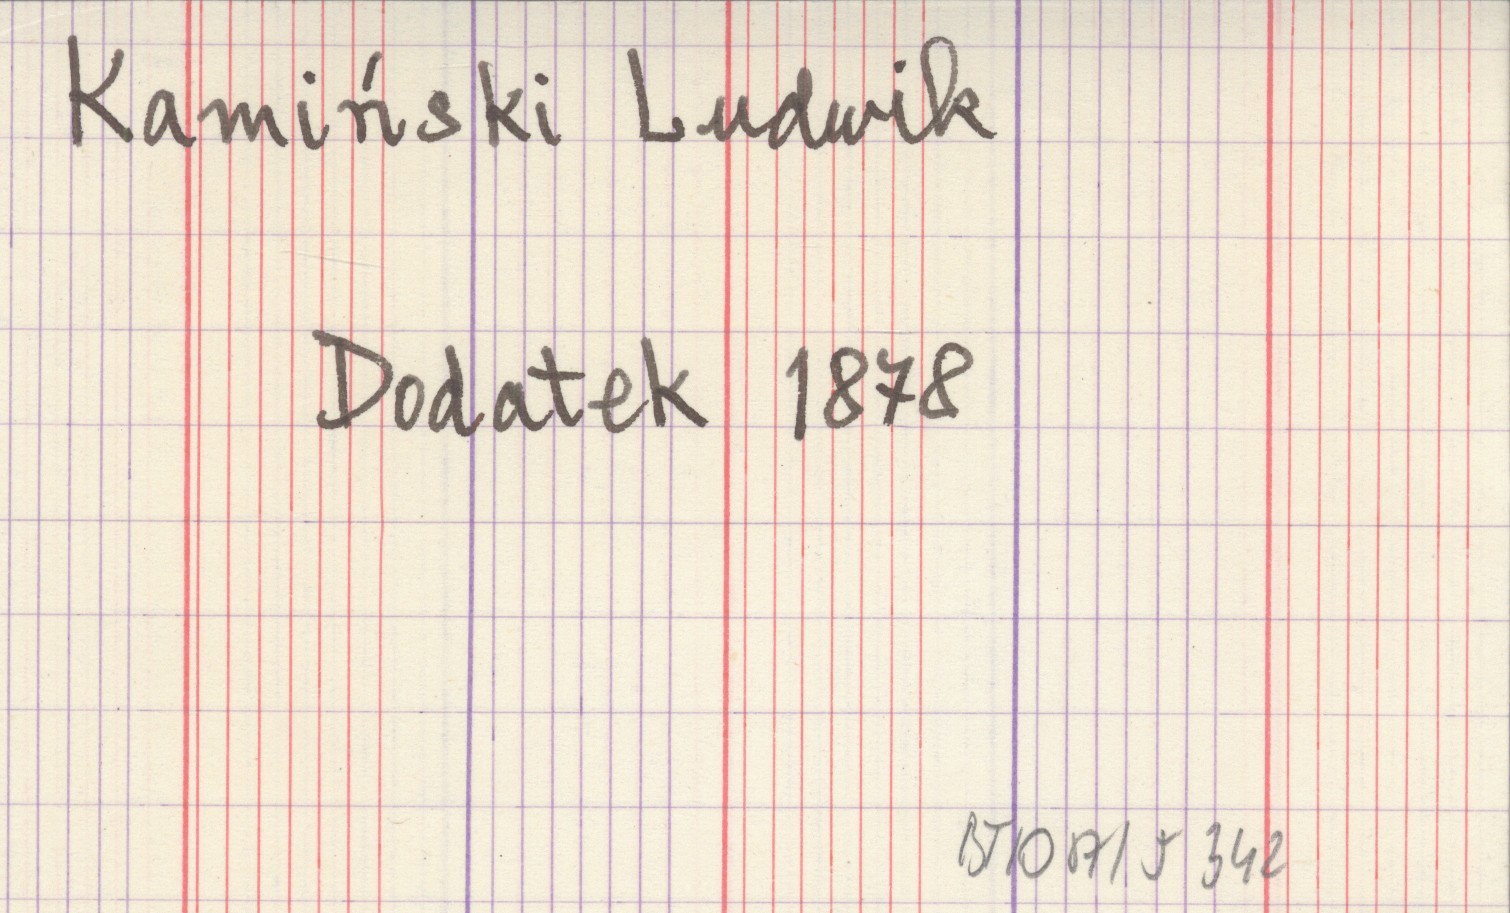 Kamiński Ludwik
Dodatek 1878
342